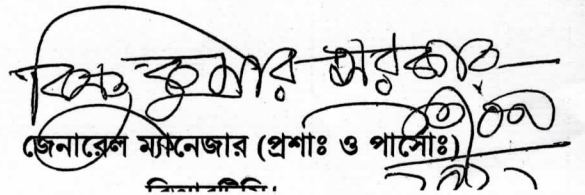 বিষ্ণু কুমার সরকার
জেনারেল ম্যানেজার (প্রশাঃ ও পার্সোঃ)
বিআরটিসি।